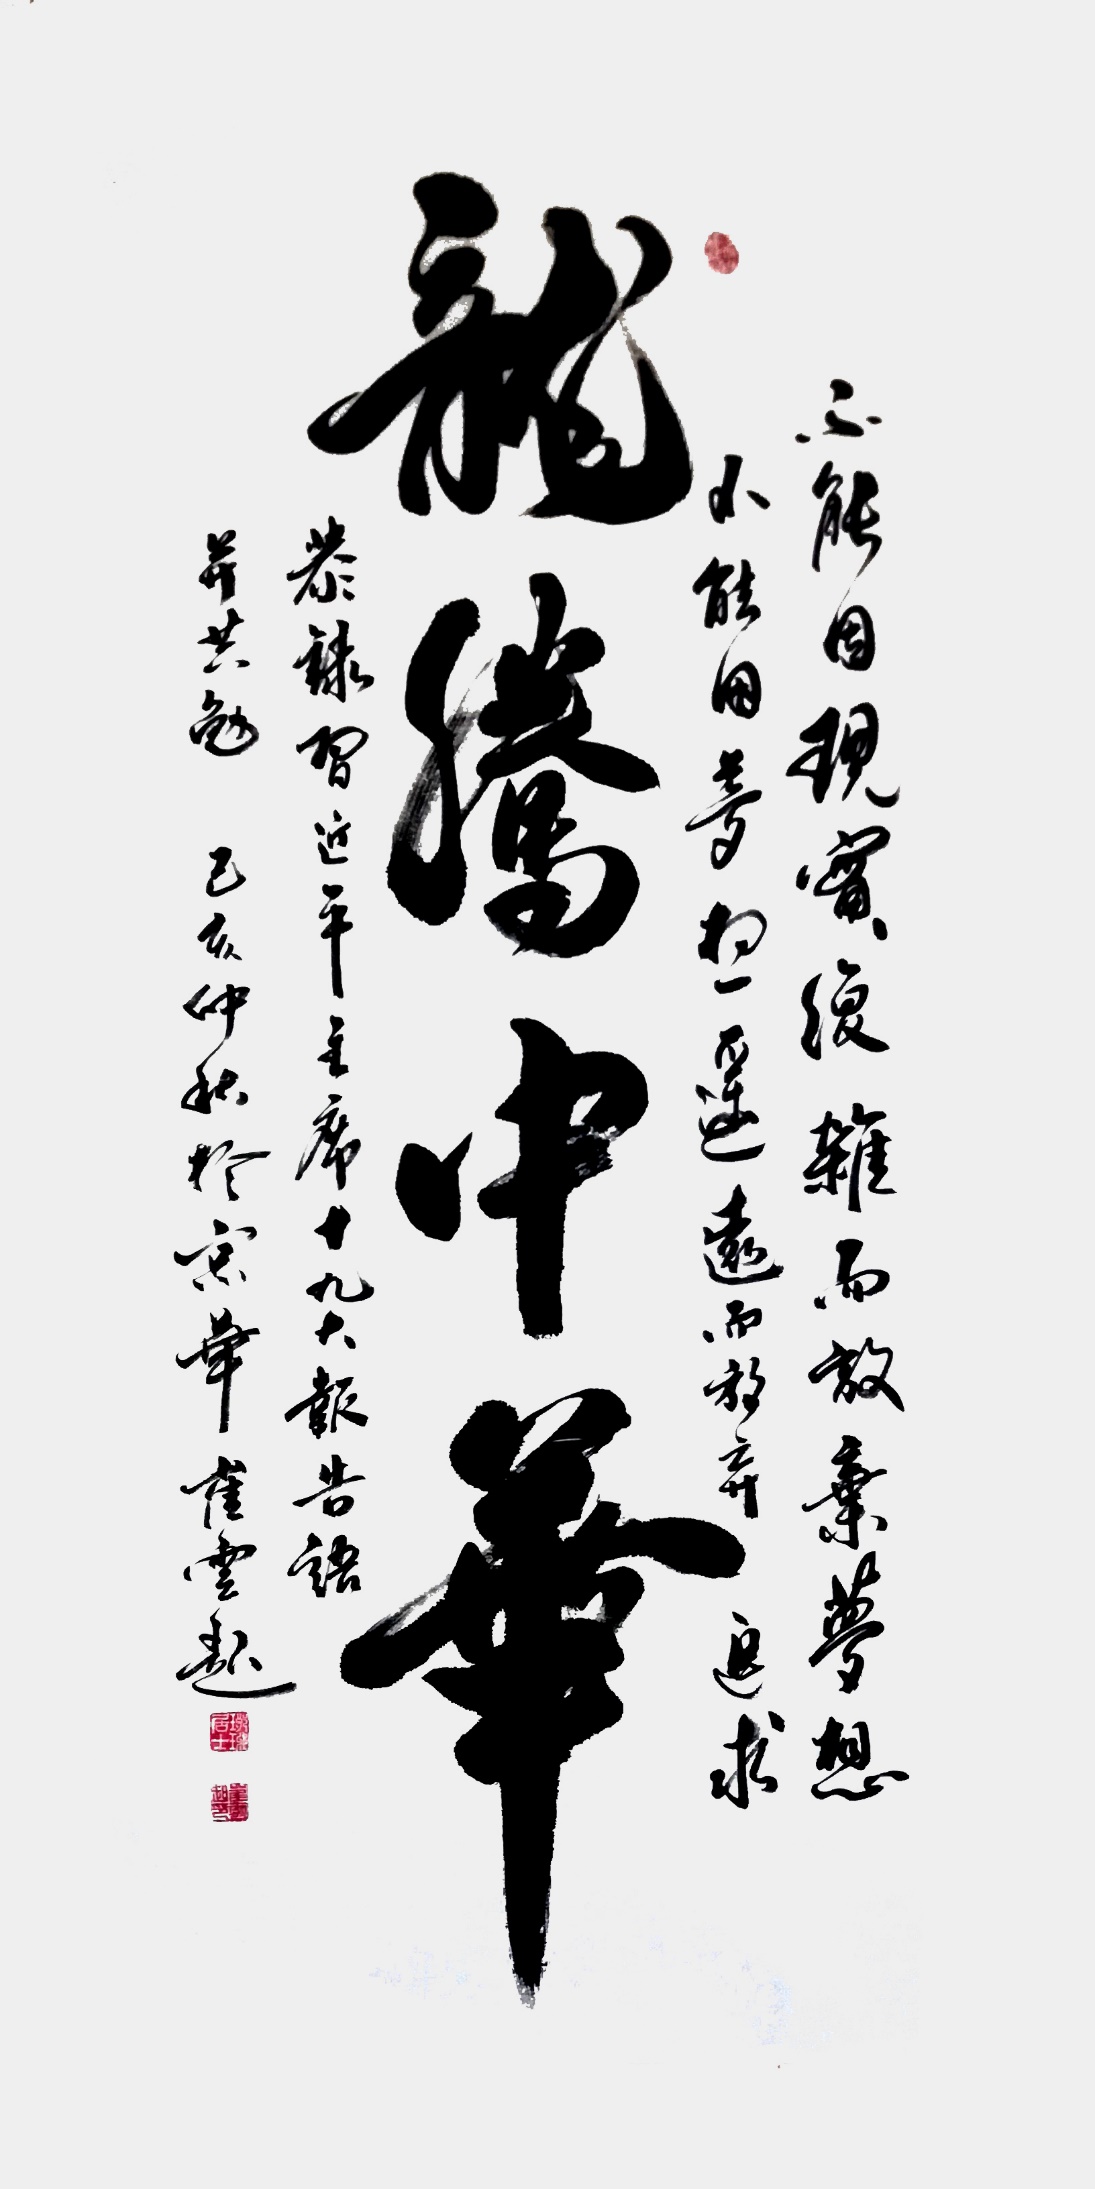 不能因現實復雜而放棄夢想
不能因夢想遥遠而放弃追求
龍騰中華
恭録習近平主席十九大報告語
并共勉 己亥仲秋於京華 崔雲
居士